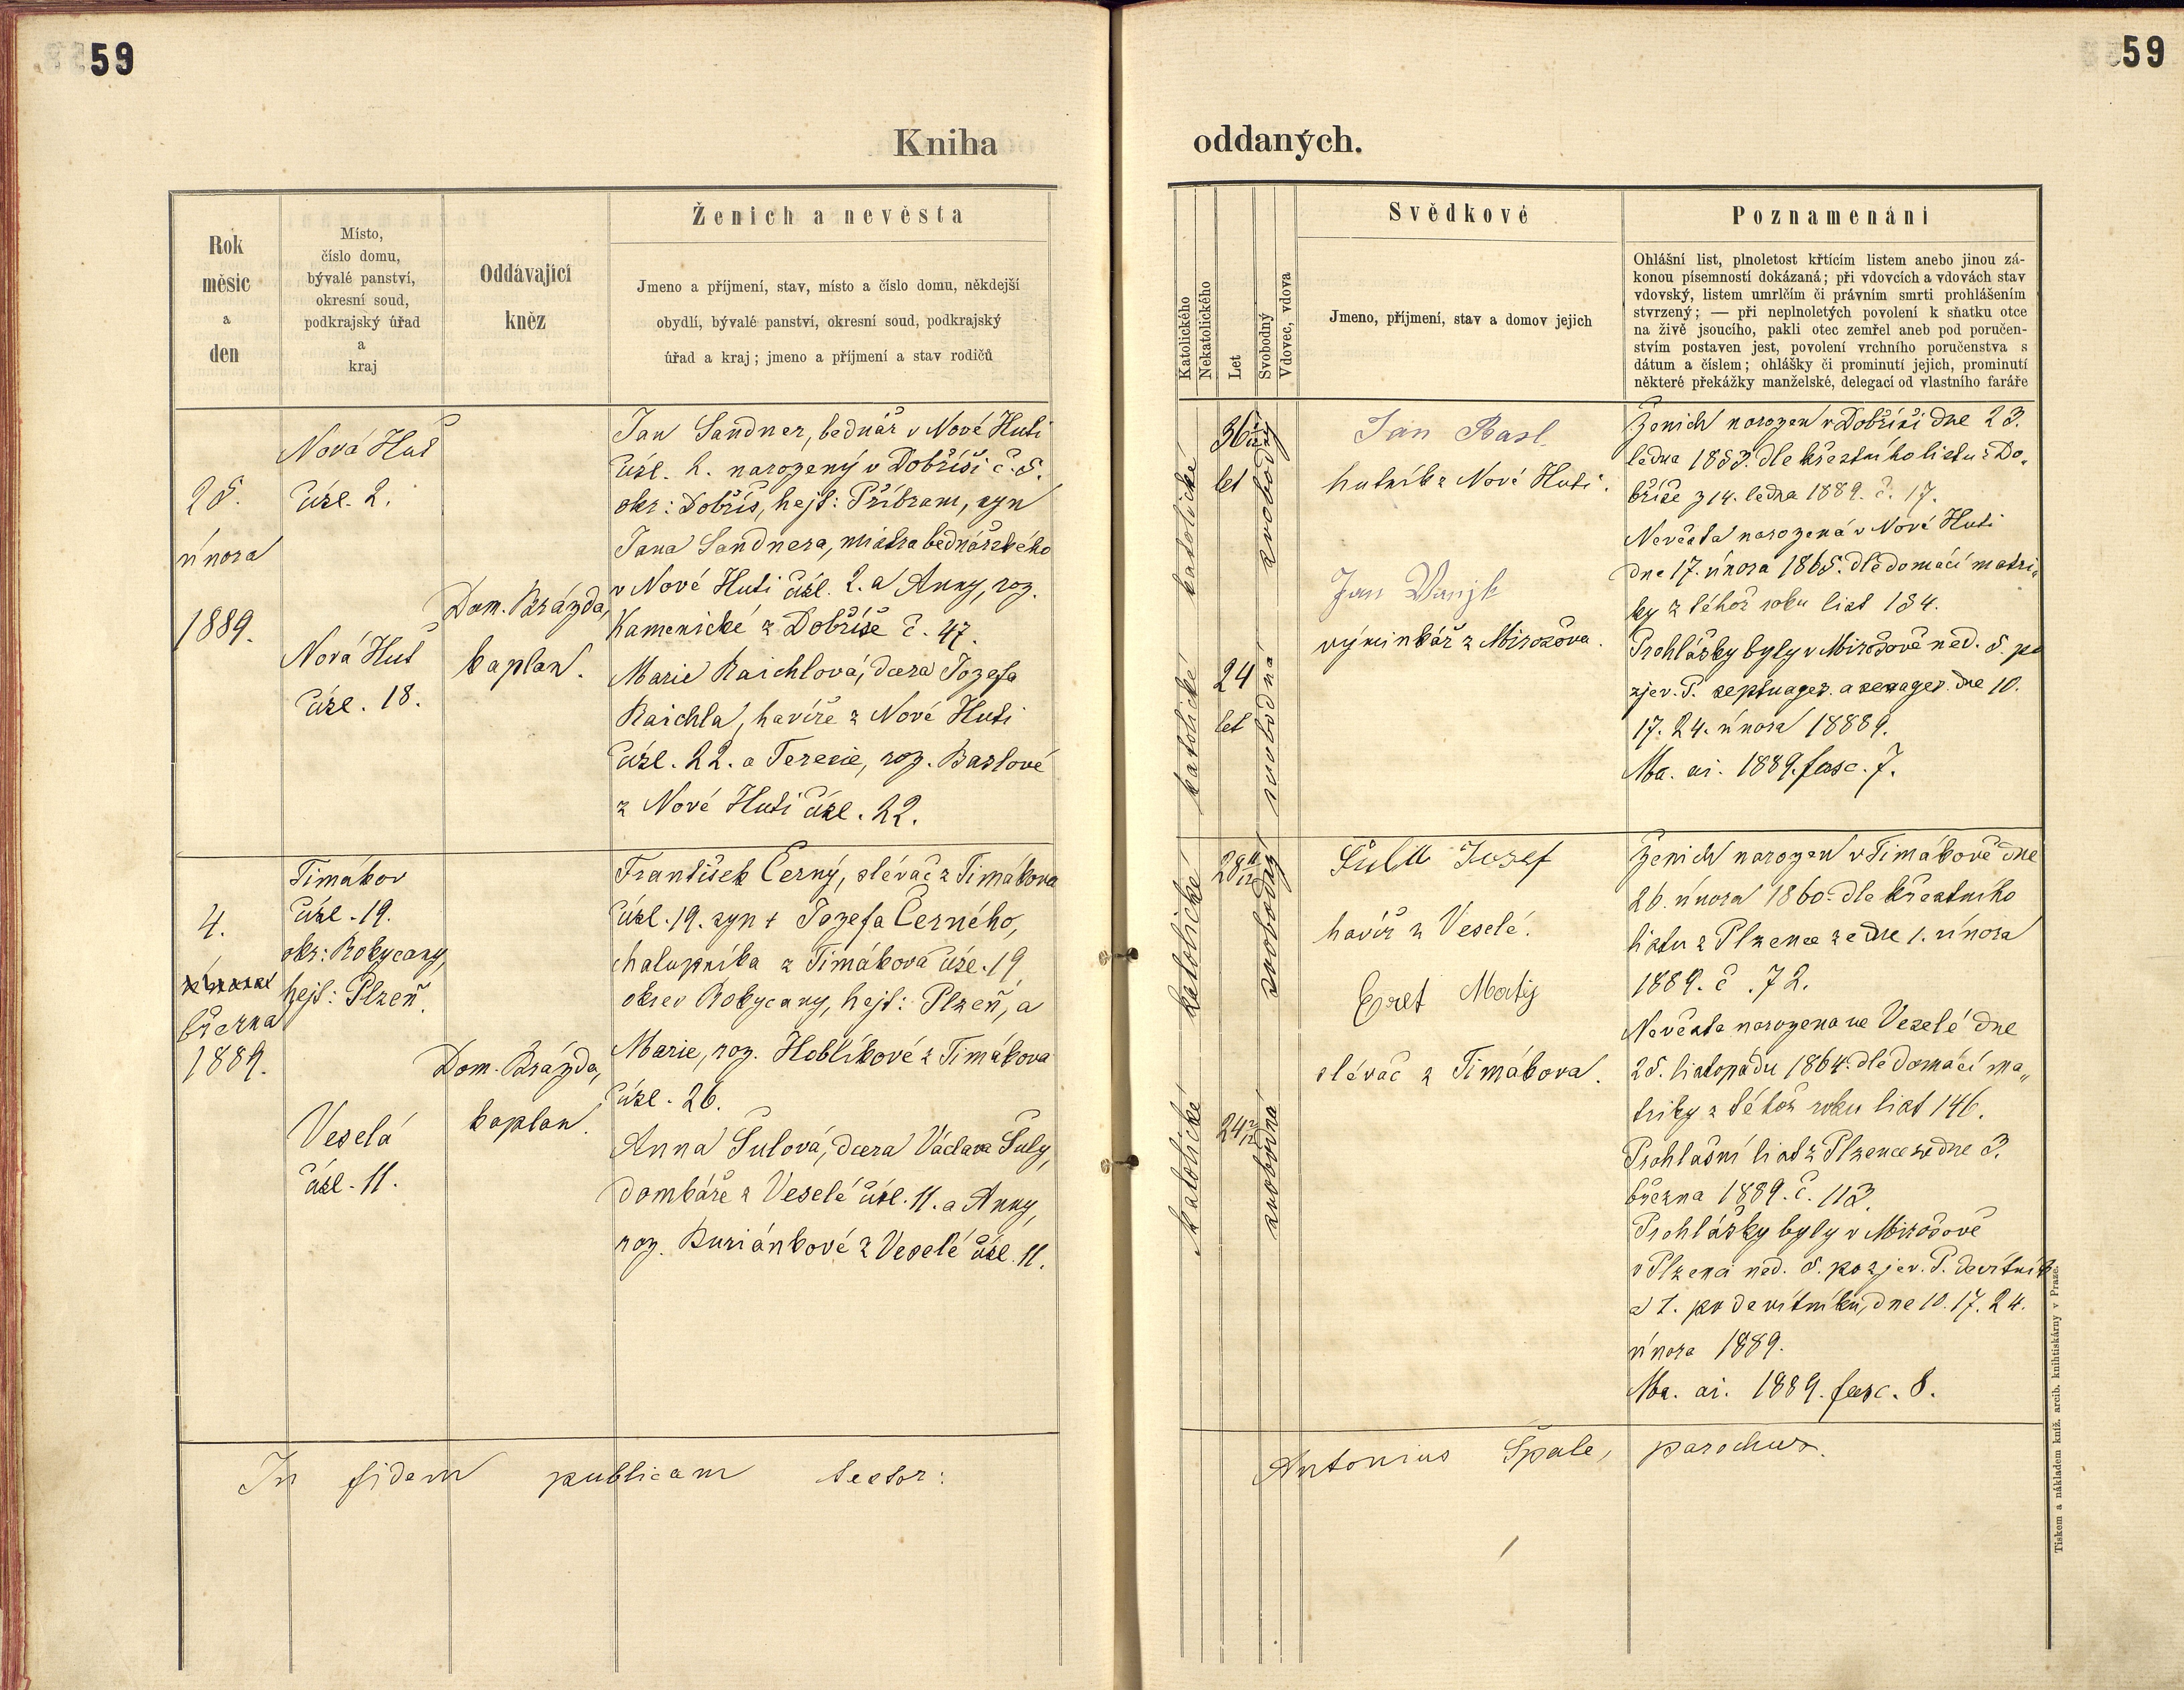 59
59
Kniha
oddaných.
Rok
měsíc
a
den
Místo,
číslo domu,
bývalé panství,
okresní soud,
podkrajský úřad
a
kraj
Oddávající
kněz
Ženich a nevěsta
Jmeno a příjmení, stav, místo a číslo domu, někdejší
obydlí, bývalé panství, okresní soud, podkrajský
úřad a kraj; jmeno a příjmení a stav rodičů
Katolického
Nekatolického
Let
Svobodný
Vdovec, vdova
Svědkové
Jmeno, příjmení, stav a domov jejich
Poznamenání
Ohlášní list, plnoletost křtícím listem anebo jinou zá-
konou písemností dokázaná; při vdovcích a vdovách stav
vdovský, listem umrlčím či právním smrti prohlášením
stvrzený; — při neplnoletých povolení k sňatku otce
na živě jsoucího, pakli otec zemřel aneb pod poručen-
stvím postaven jest, povolení vrchního poručenstva s
dátum a číslem; ohlášky či prominutí jejich, prominutí
některé překážky manželské, delegací od vlastního faráře
25.
února
1889.
Nová Huť
čísl. 2.
Nová Huť
čísl. 18.
Dom. Brázda,
kaplan.
Jan Sandner, bednář v Nové Huti
čísl. 2. narozený v Dobříši č. 5.
okr: Dobříš, hejt: Příbram, syn
Jana Sandnera, mistra bednářského
v Nové Huti čísl. 2. a Anny, roz.
Kamenické z Dobříše č. 47.
Marie Raichlová, dcera Jozefa
Raichla, havíře z Nové Huti
čísl. 22. a Terezie, roz. Baslové
z Nové Huti čísl. 22.
katolické
36
let
svobodný
katolické
24
let
svobodná
Jan Basl
hutník z Nové Huti.
Jan Vanjk
výminkář z Mirošova.
Ženich narozen v Dobříši dne 23.
ledna 1853. dle křestního listu z Do„
bříše z 14. ledna 1889. č. 17.
Nevěsta narozená v Nové Huti
dne 17. února 1865. dle domácí matri„
ky z téhož roku list 184.
Prohlášky byly v Mirošově ned. 5. po
zjev. P. septuages. a sexages. dne 10.
17. 24. února 18889.
Ma. ai. 1889. fasc. 7.
4.
března
1889.
Timákov
čísl. 19.
okr: Rokycany,
hejt: Plzeň.
Veselá
čísl. 11.
Dom. Brázda,
kaplan.
František Černý, slévač z Timákova
čísl. 19. syn + Jozefa Černého,
chalupníka z Timákova čísl. 19
okres Rokycany, hejt: Plzeň, a
Marie, roz. Hoblíkové z Timákova
čísl. 26.
Anna Šulová, dcera Václava Šuly,
domkáře z Veselé čísl. 11. a Anny,
roz. Buriánkové z Veselé čísl. 11.
katolické
28
svobodný
katolické
24
svobodná
Šula Jozef
havíř z Veselé.
Egret Matěj
slévač z Timákova.
Ženich narozen v Timákově dne
26. února 1860. dle křestního
listu z Plzence ze dne 1. února
1889. č. 72.
Nevěsta narozena ve Veselé dne
25. listopadu 1864. dle domácí ma„
triky z téhož roku list 146.
Prohlašní list z Plzence ze dne 3.
března 1889. č. 113.
Prohlášky byly v Mirošově
v Plzenci ned. 5. po zjev. P. devítník
a 1. po devítníku, dne 10. 17. 24.
února 1889.
Ma. ai. 1889. fasc. 8.
In fidem publicam testor:
Antonius Špale, parochus.
Tiskem a nákladem kníž. arcib. knihtiskárny v Praze.